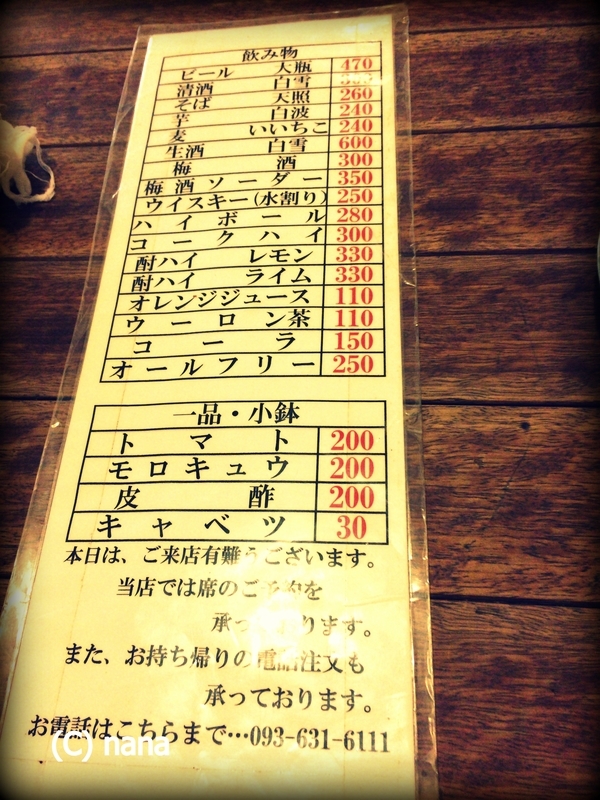 飲み物
ビール 大瓶 470
清酒 白雪
そば 天照 260
芋 白波 240
麦 いいちこ 240
生酒 白雪 600
梅酒 300
梅酒ソーダー 350
ウイスキー(水割り) 250
ハイボール 280
コークハイ 300
酎ハイ レモン 330
酎ハイ ライム 330
オレンジジュース 110
ウーロン茶 110
コーラ 150
オールフリー 250
一品・小鉢
トマト 200
モロキュウ 200
皮酢 200
キャベツ 30
本日は、ご来店有難うございます。
当店では席のご予約を
承っております。
また、お持ち帰りの電話注文も
承っております。
お電話はこちらまで…093-631-6111
(C) nana